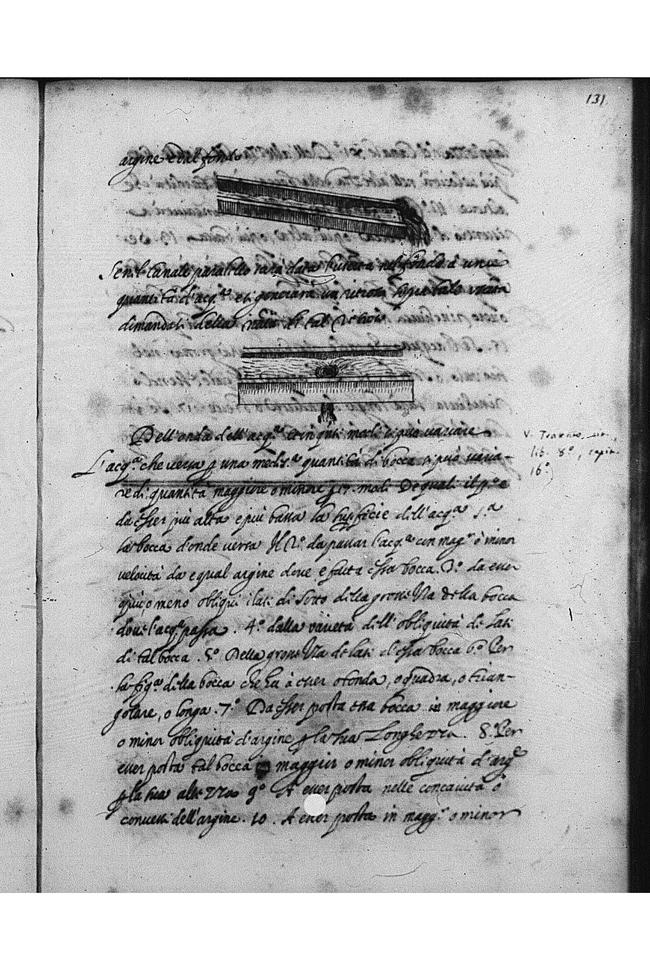 131
argine e dal fondo
Se nel canale paralello sara data l'uscita nel fondo à una
quantità d'acq.ª e si generara un retroso superficiale
dimandasi della di tal retroso
Dell'onda dell'acq.ª e in quti modi si può variare
L'acq.ª che versa p una med.ª quantità di bocca si può varia
re di quantità maggiore o minore p 17. modi De quali il p.º e
da esser più alta e più bassa la superficie dell'acq.ª s.ª
la bocca d'onde versa Il 2.º da passar l'acq.ª con mag.e ò minor
velocità da equal argine dove è fatta essa bocca. 3.º da esser
più o meno obliqui i lati di sotto della grossezza della bocca
dove l'acq.ª passa. 4.º dalla varietà dell'obliquità de lati
di tal bocca. 5.º Della grossezza de lati d'essa bocca 6.º Per
la fig.ª della bocca che ha à esser rotonda, o quadra, o trian-
golare, o longa. 7.º Da esser posta tna bocca in maggiore
o minor obliquità d'argine p la sua Longhezza. 8.º Per
esser posta tal bocca maggior o minor obliquità d'arg.e
p la sua altezza 9.º A esser posta nelle concavità ò
convessi dell'argine. 10. A esser posta in magg.e o minor
lib. 8º,
16º)